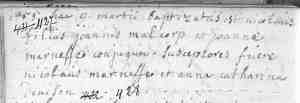 9 martii baptizatus est nicolaus
filius joannis malcorp et joanne
marneffe conjugum susceptores fuere
nicolaus marneffe et anna catharina